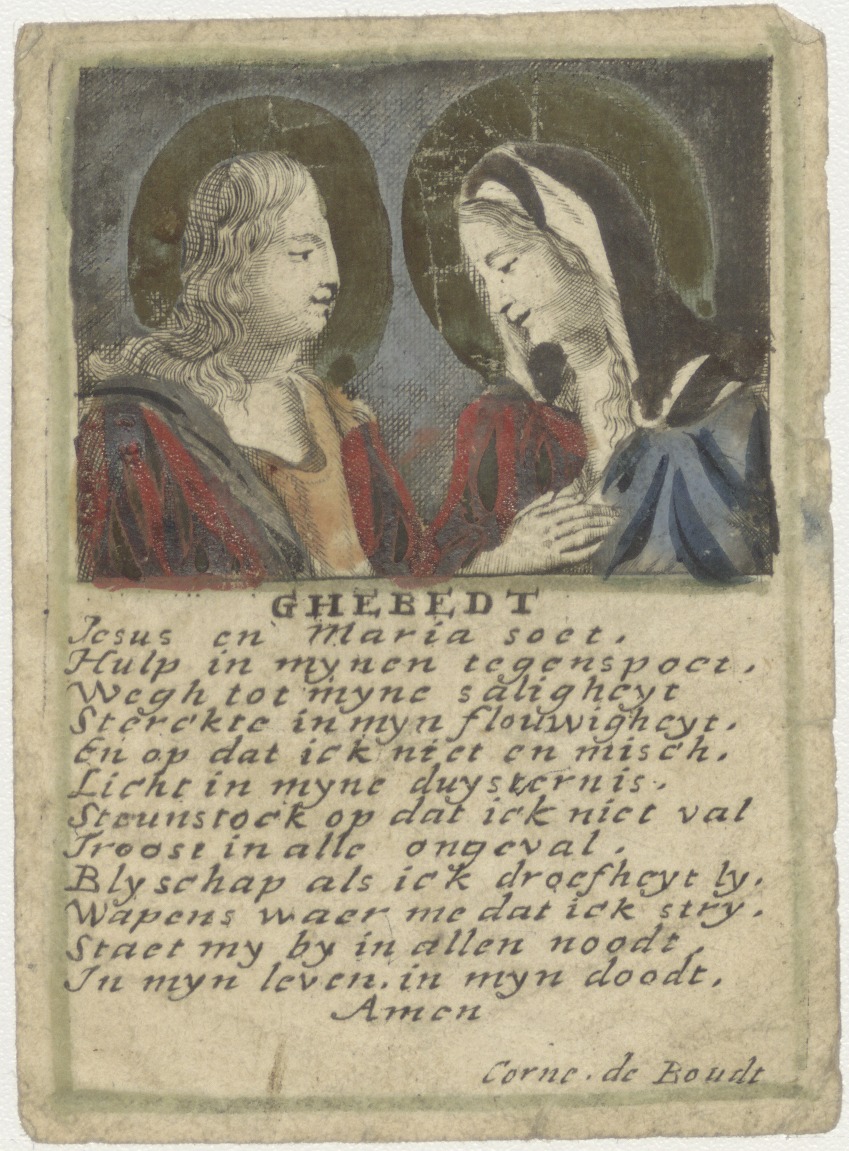 GHEBEDT
Jesus en Maria soet.
Hulp in mynen tegenspoet.
Wegh tot myne saligheyt
Sterckte in myn flouwigheyt.
En op dat ick niet en misch.
Licht in myne duysternis.
Steunstock op dat ick niet val
Troost in alle ongeval.
Blyschap als ick droefheyt ly.
Wapens waer me dat ick stry.
Staet my by in allen noodt,
In myn leven. in myn doodt.
Amen
Corne. de Boudt